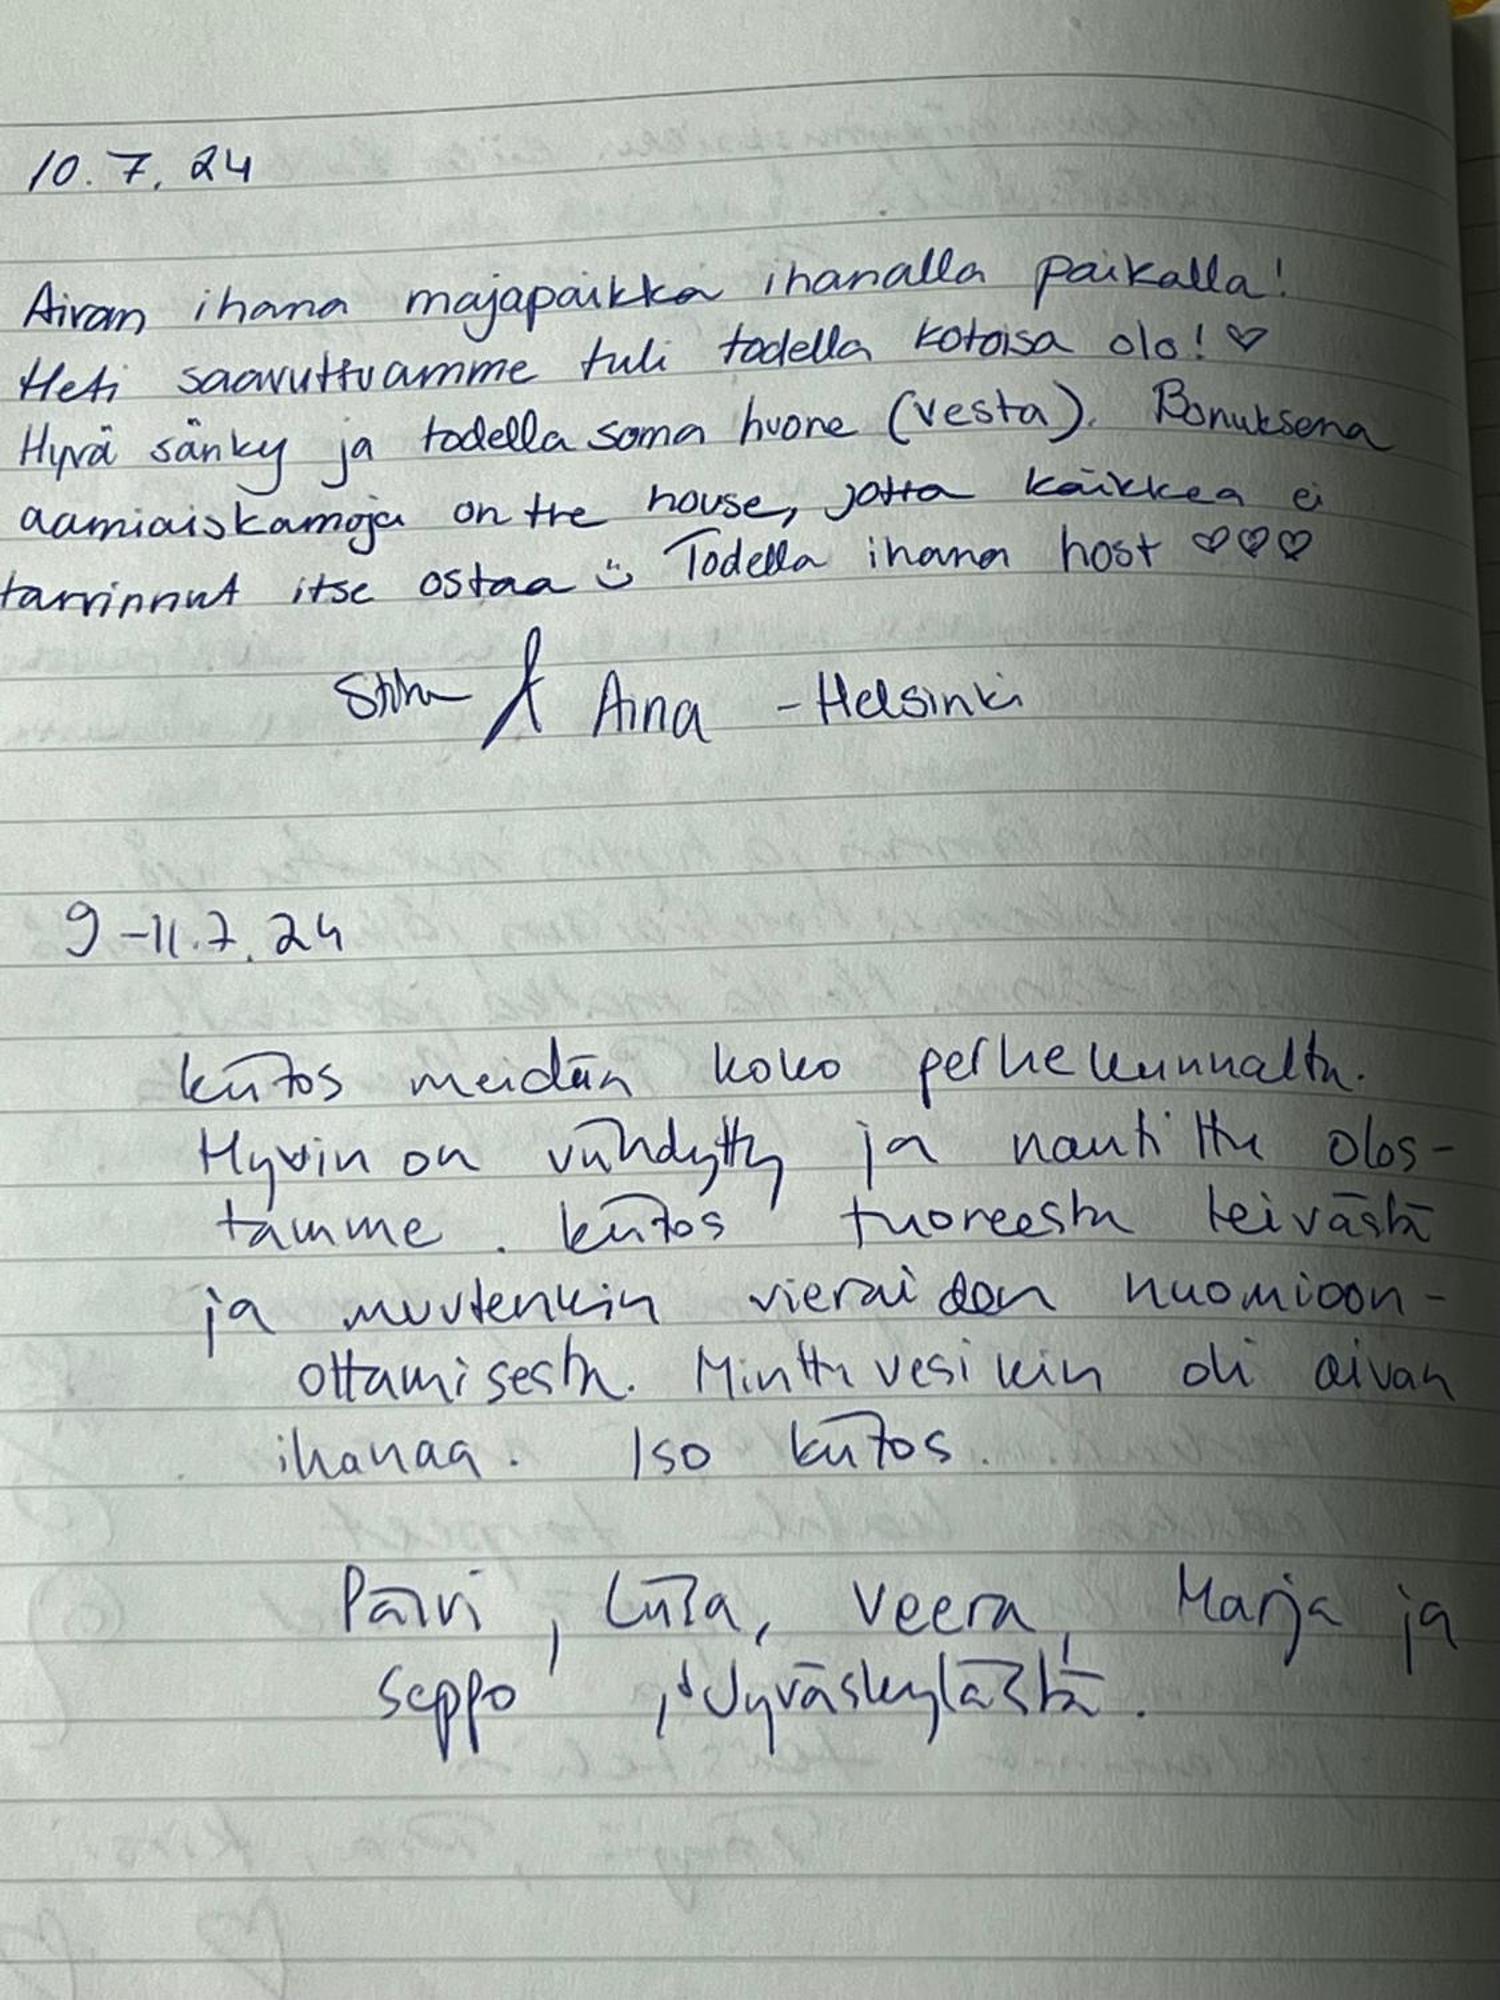 10.7.24
Aivan ihana majapaikka ihanalla paikalla!
Heti saavuttuamme tuli todella kotoisa olo! ♡
Hyvä sänky ja todella soma huone (Vesta). Bonuksena
aamiaiskamoja on the house, jotta kaikkea ei
tarvinnut itse ostaa :) Todella ihana host ♡♡♡
& Aina - Helsinki
9-11.7.24
Kiitos meidän koko perhekunnalta.
Hyvin on viihdytty ja nautittu olos-
tamme. Kiitos tuoreesta leivästä
ja muutenkin vieraiden huomioon-
ottamisesta. Minttuvesikin oli aivan
ihanaa. Iso kiitos.
Päivi, Liisa, Veera, Marja ja
Seppo, Jyväskylästä.